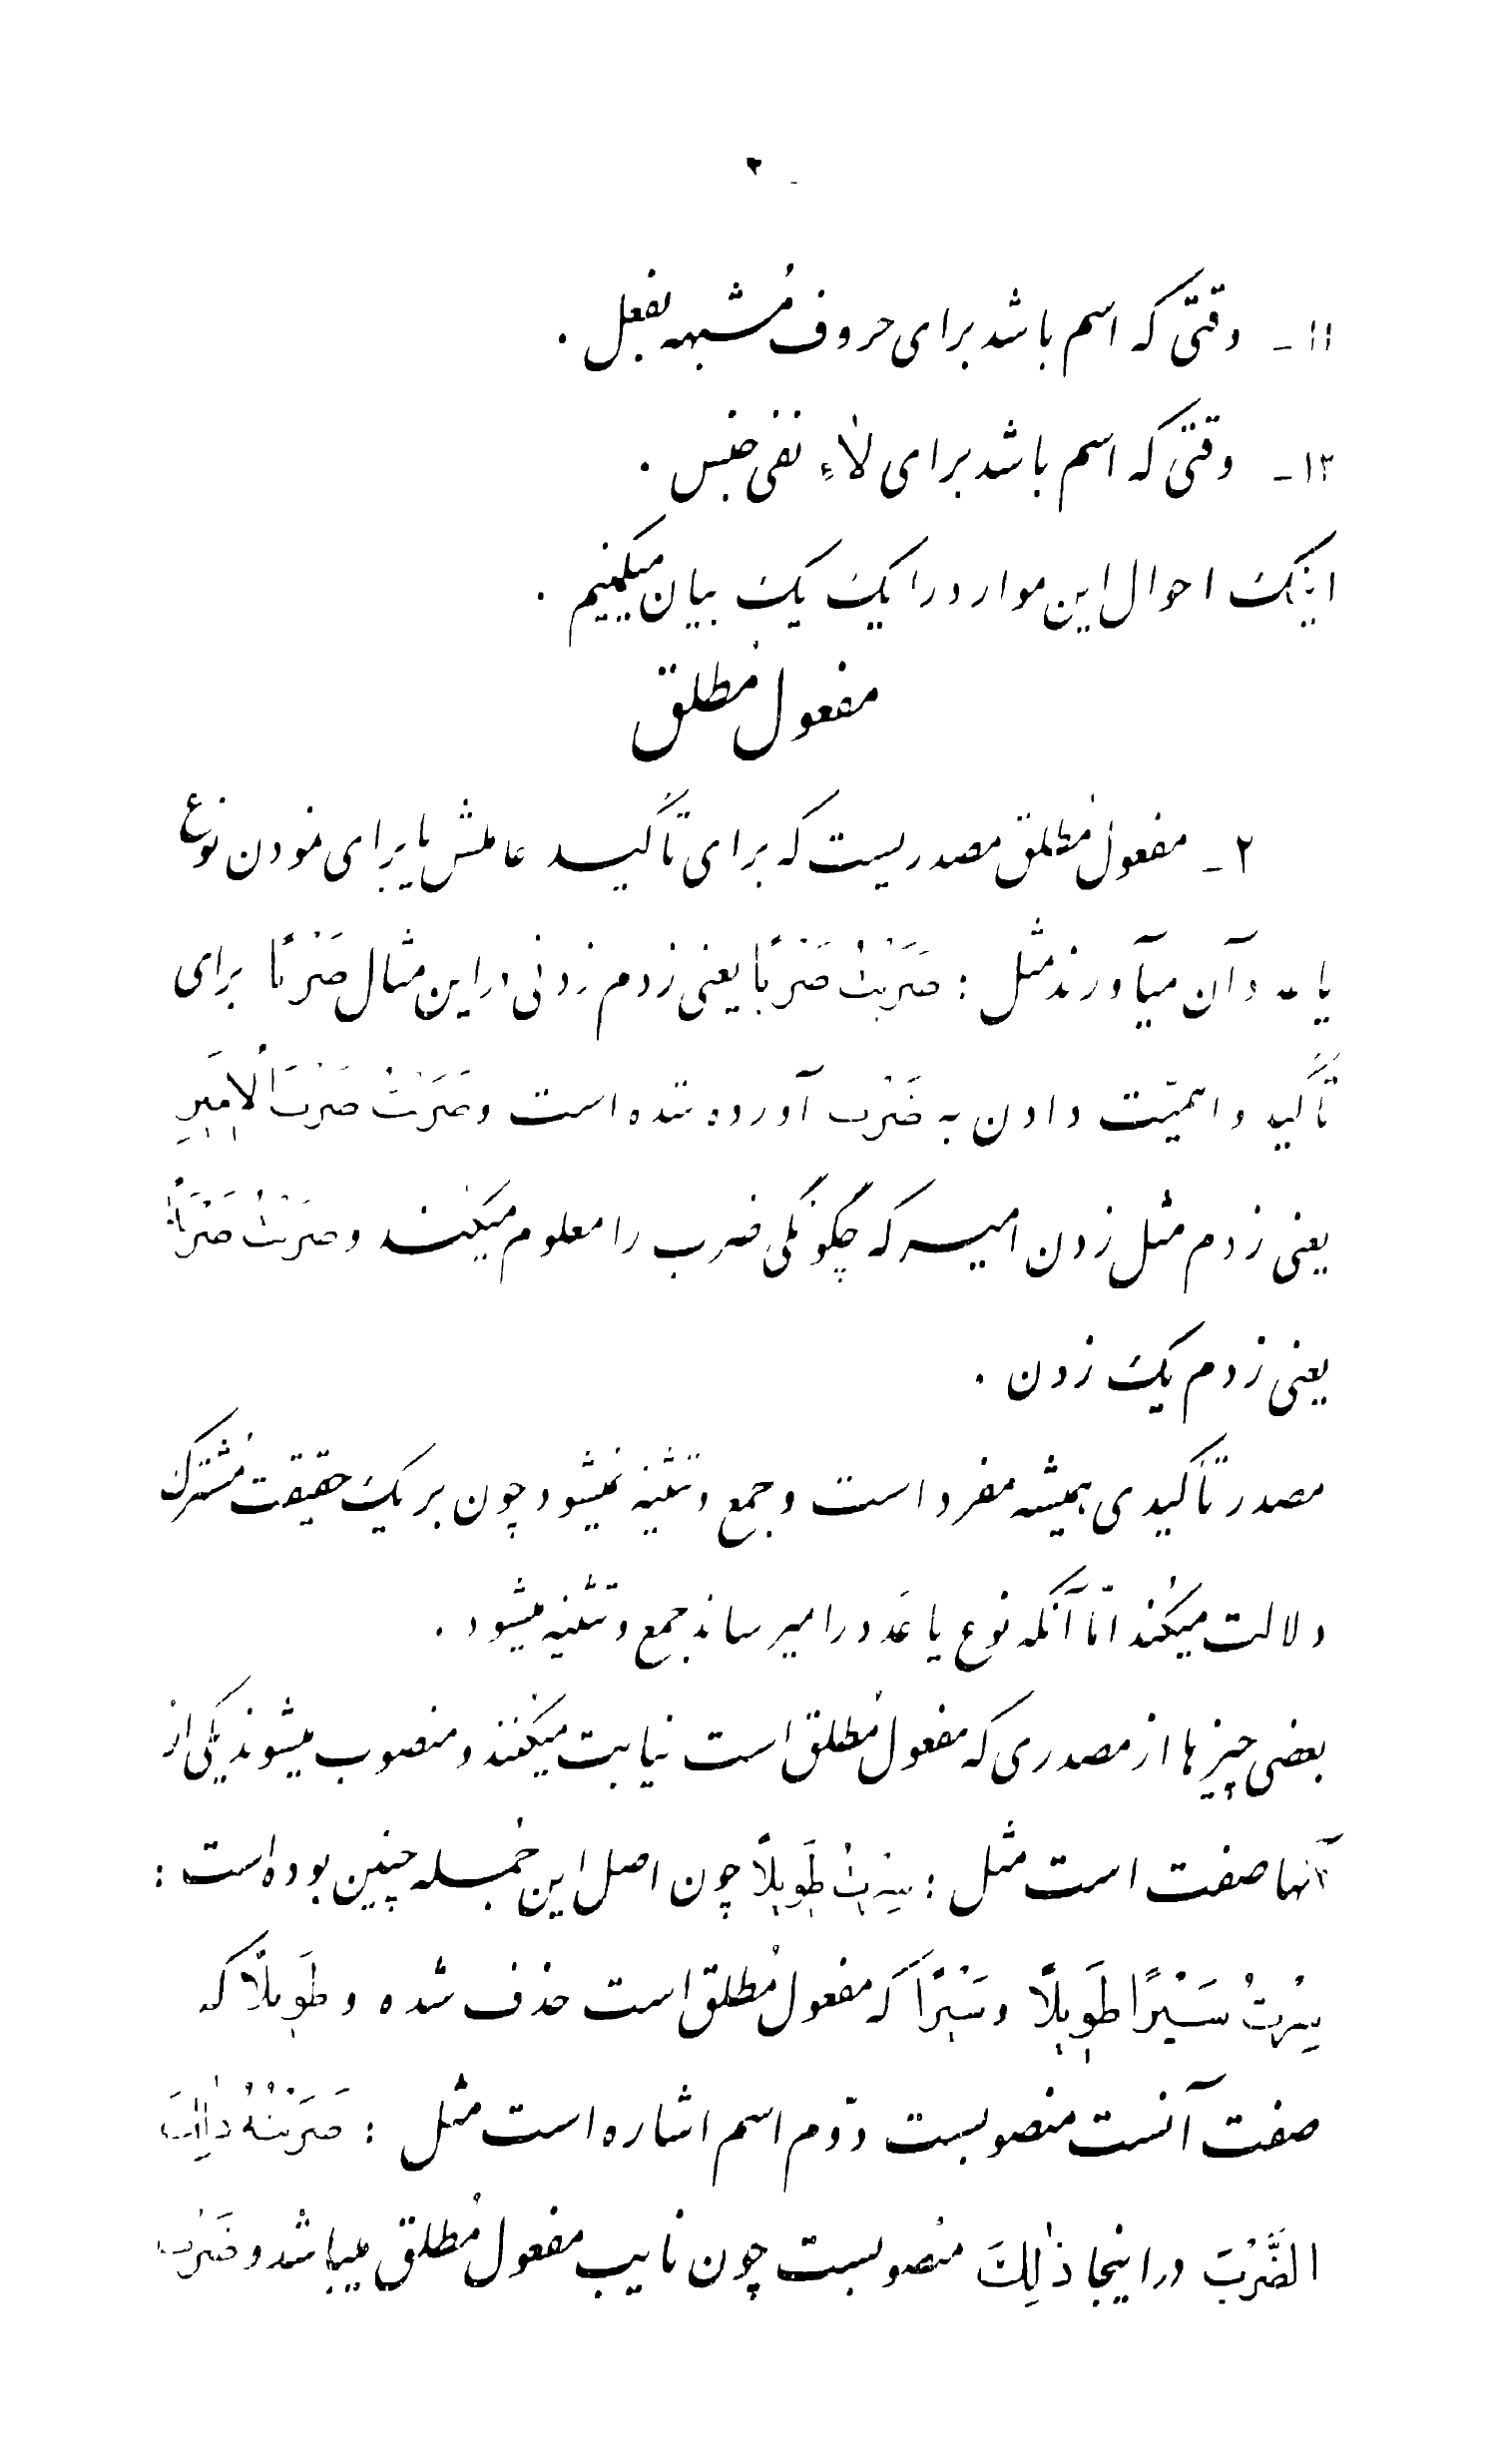 ۲
۱۱ـ وقتی که اسم باشد برای حروف مُشبهه بفعل .
۱۲ـ وقتی که اسم باشد برای لاٰءِ نفی جنس .
اینک احوال این موارد را یک یک بیان میکنیم .
مفعول مُطلق
۲ـ مفعول مُطلق مصدریست که برای تأکید عاملش یا برای نمودن نوع
یا عدد آن میآورند مثل : ضَرَبْتُ ضَرْبًا یعنی زدم زدنی در این مثال ضَرْبًا برای
تأکید و اهمیّت دادن به ضَرْب آورده شده است و ضَرَبْتُ ضَرْبَ الْاَمِیرِ
یعنی زدم مثل زدن امیر که چگونگی ضرب را معلوم میکند و ضَرَبْتُ ضَرْبَةً
یعنی زدم یک زدن .
مصدر تأکیدی همیشه مفرد است و جمع و تثنیه نمیشود چون بر یک حقیقت مُشترک
دلالت میکُند امّا آنکه نوع یا عَدد را میرساند جمع و تثنیه میشود .
بعضی چیزها از مصدری که مفعول مُطلق است نیابت میکنند و منصوب میشوند یکی از
آنها صفت است مثل : سِرْتُ طَوِیلًا چون اصل این جُمله چنین بوده است :
سِرْتُ سَیْرًا طَوِیلًا و سَیْرًا که مفعول مُطلق است حذف شده و طَوِیلًا که
صفت آنست منصوبست دوّم اسم اشاره است مثل : ضَرَبْتُهُ ذٰلِكَ
الضَّرْبَ در اینجا ذٰلِكَ منصوبست چون نایب مفعول مُطلق میباشد و ضَرْب